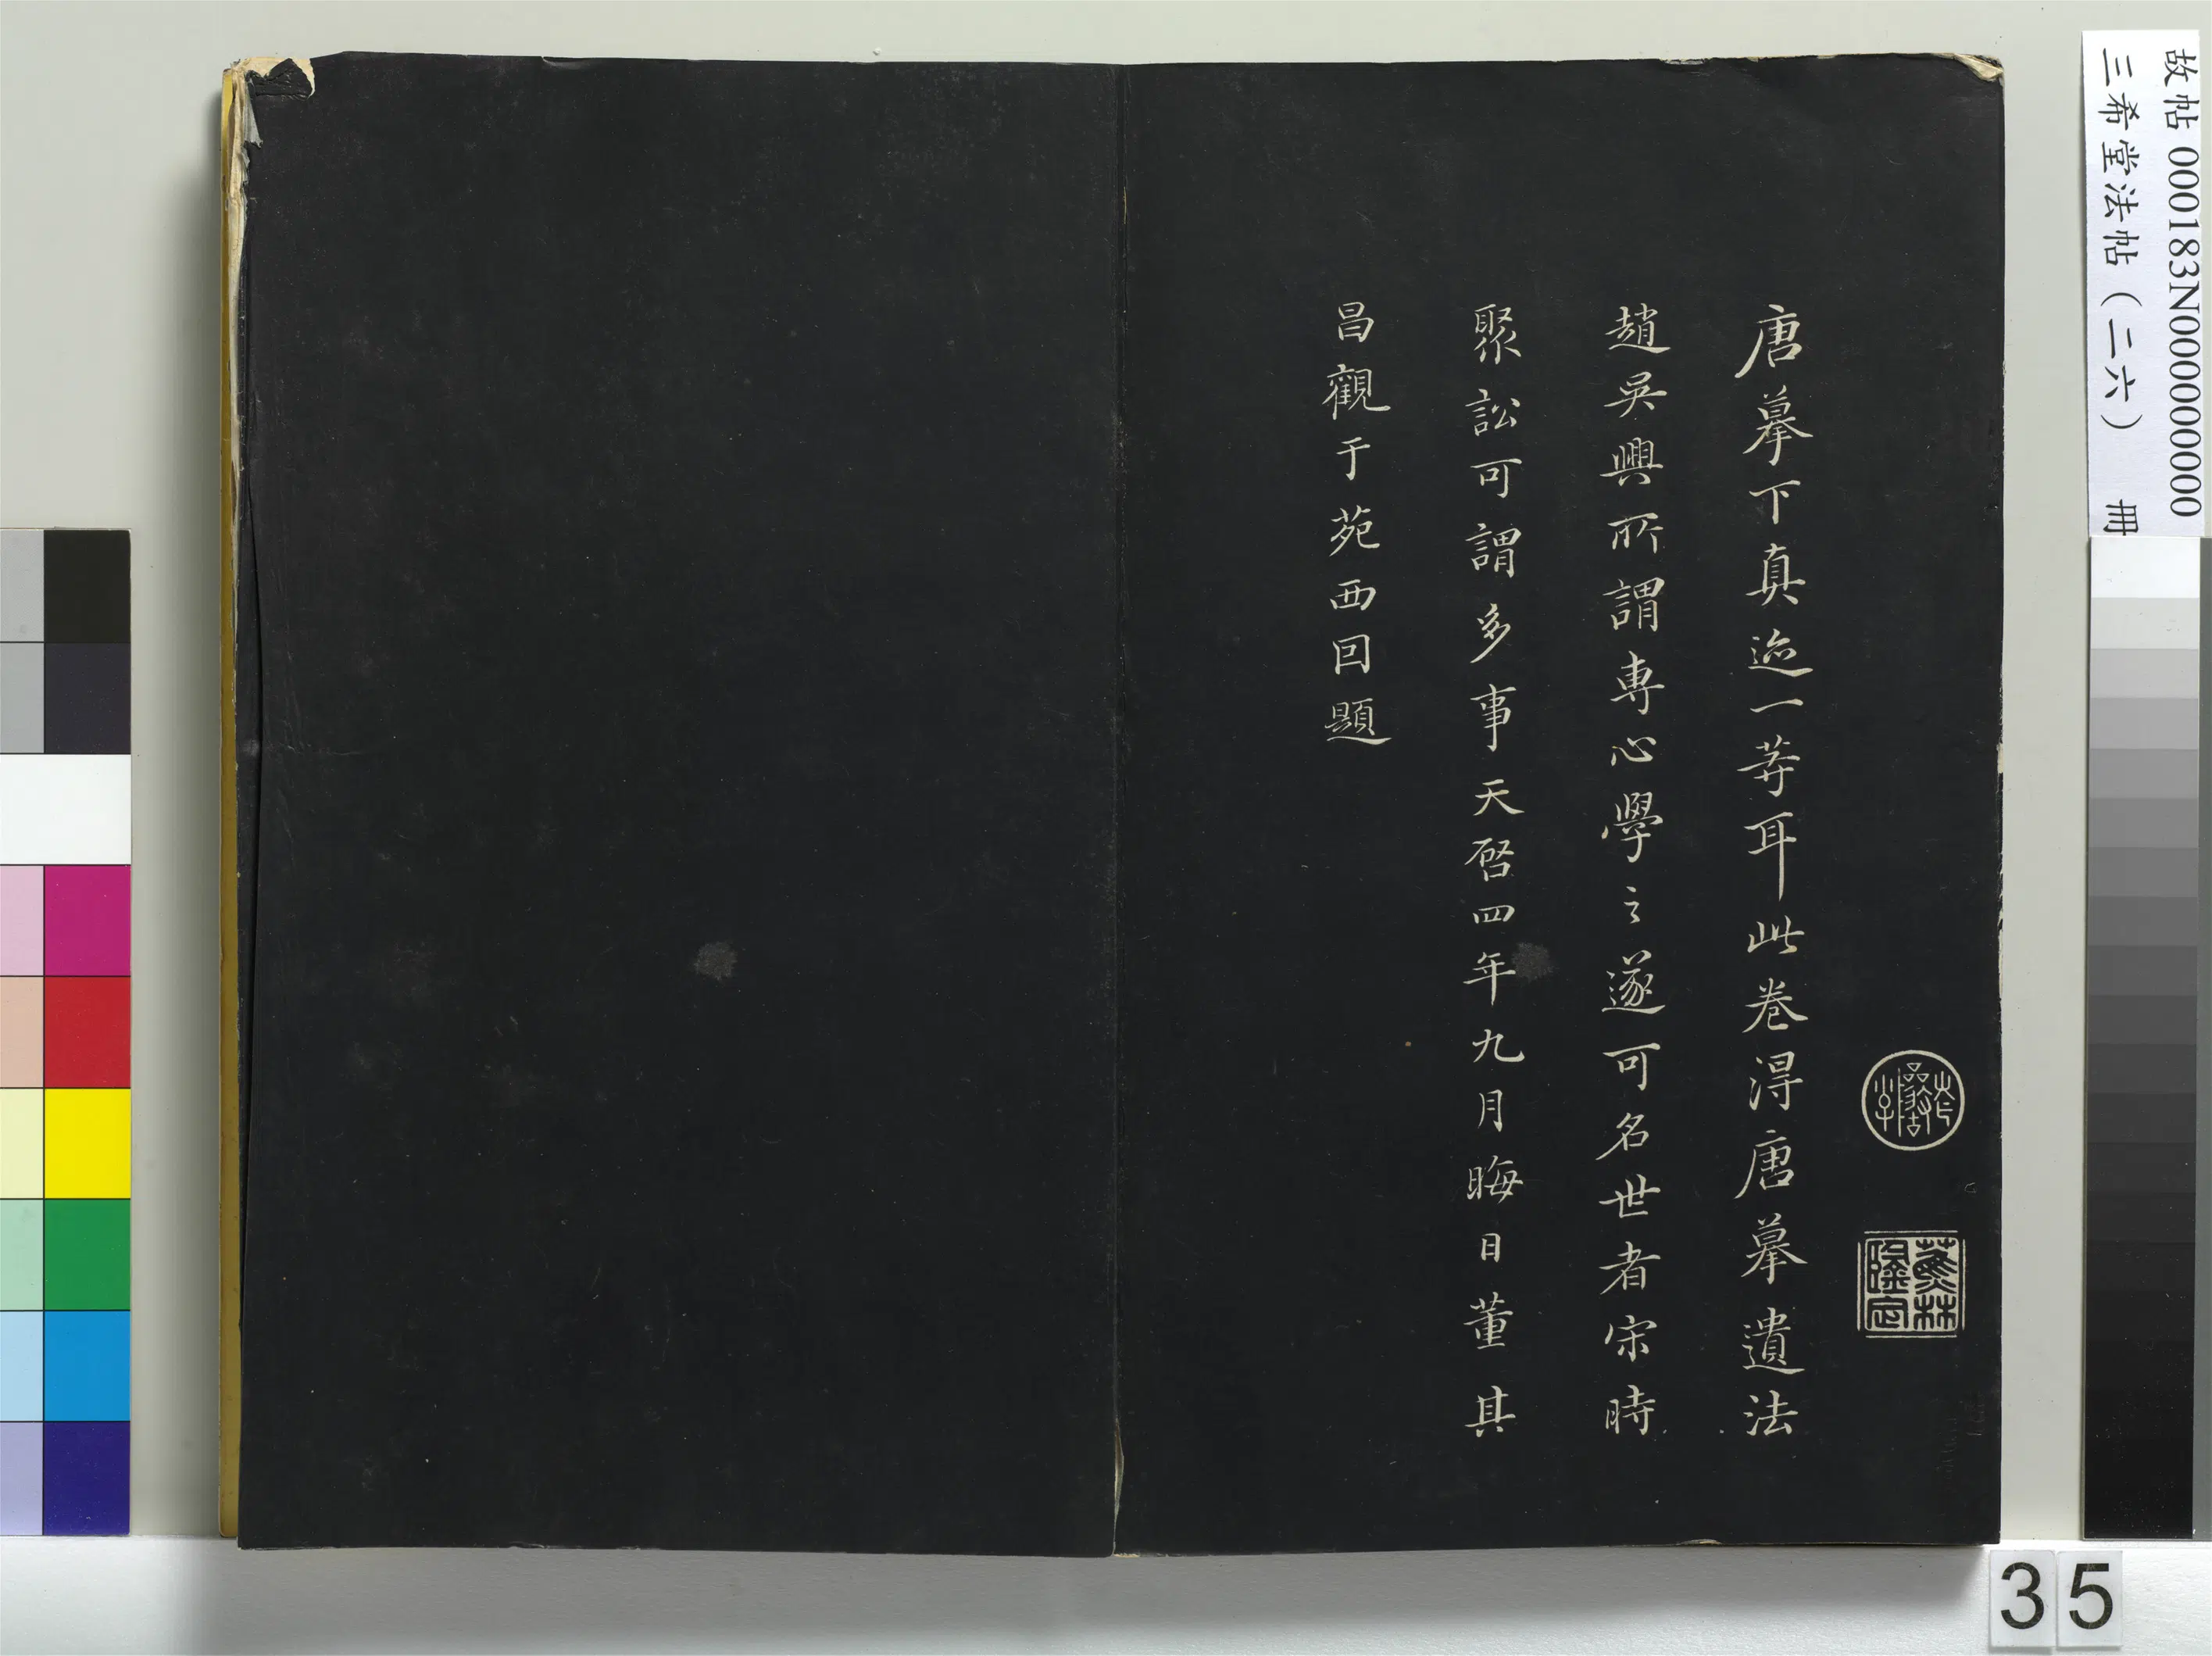 唐摹下真迹一等耳此卷得唐摹遺法
趙吳興所謂專心學之遂可名世者宋時
聚訟可謂多事天啓四年九月晦日董其
昌觀于苑西因題
蕉林
隆官
故帖 000183N000000000
三希堂法帖（二六） 冊
35